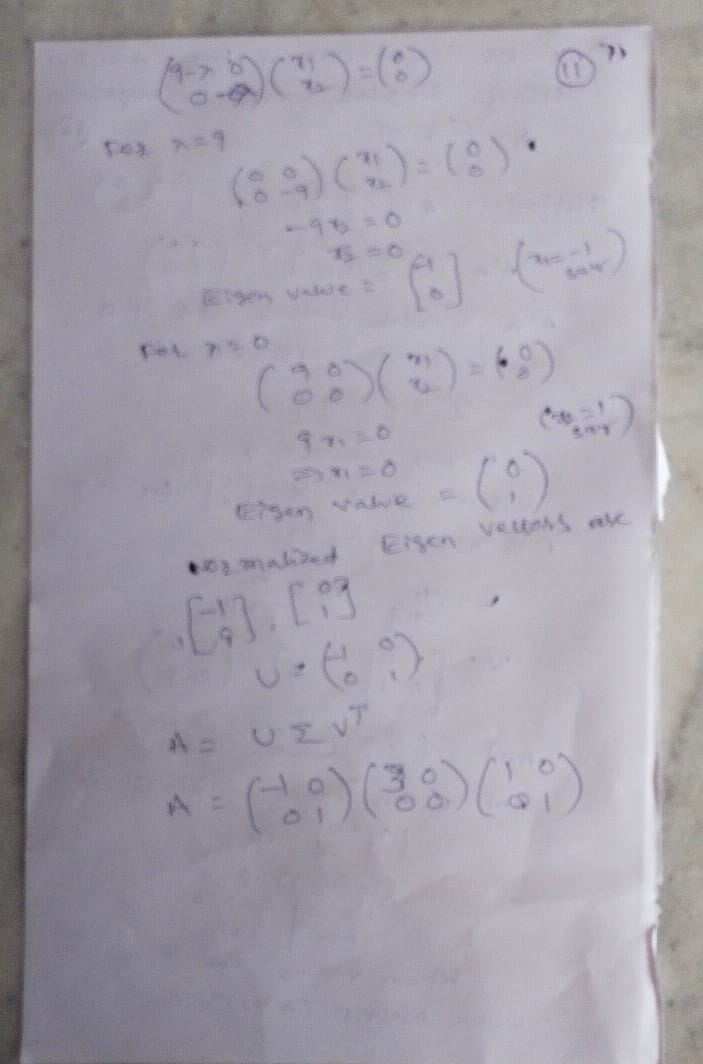 (9-λ 0 0 -λ) (x1 x2) = (0 0) (11)
For λ=9
(0 0 0 -9) (x1 x2) = (0 0)
-9x2 = 0
x2 = 0
Eigen value = [-1 0] (x1 = -1 say)
For λ=0
(9 0 0 0) (x1 x2) = (0 0)
9x1 = 0 (x2 = 1 say)
=> x1 = 0
Eigen value = (0 1)
Normalized Eigen vectors are
[-1 0], [0 1]
U = (-1 0 0 1)
A = U Σ V^T
A = (-1 0 0 1) (3 0 0 0) (1 0 0 1)